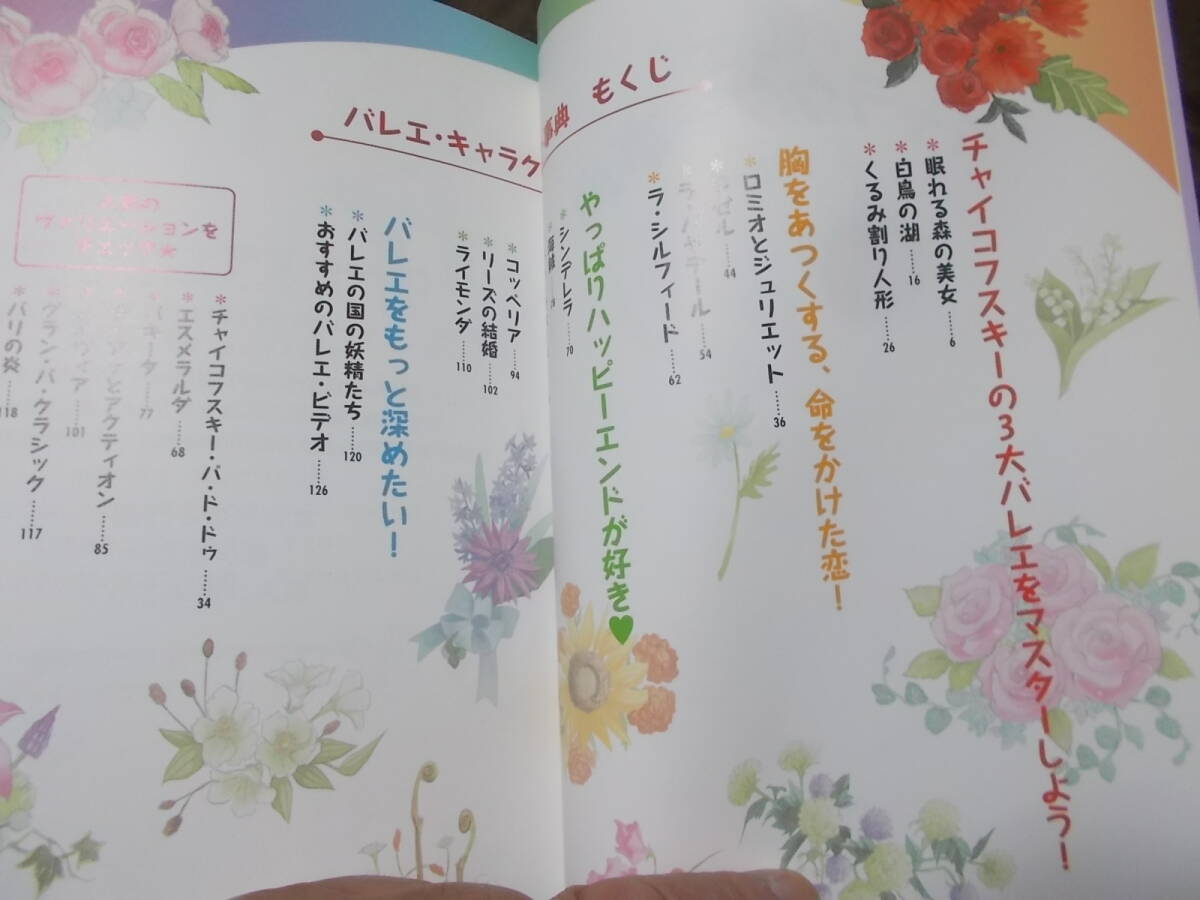 バレエ・キャラク
事典 もくじ
チャイコフスキーの3大バレエをマスターしよう!
*眠れる森の美女……6
*白鳥の湖……16
*くるみ割り人形……26
胸をあつくする、命をかけた恋!
*ロミオとジュリエット……36
44
ラ・バヤデール……54
*ラ・シルフィード……62
やっぱりハッピーエンドが好き♥
*シンデレラ……70
*コッペリア……94
*リーズの結婚……102
*ライモンダ……110
バレエをもっと深めたい!
*バレエの国の妖精たち……120
*おすすめのバレエ・ビデオ……126
ヴァリエーションを
*チャイコフスキー・パ・ド・ドゥ……34
*エスメラルダ……68
パキータ……77
とアクティオン……85
101
グラン・パ・クラシック……117
パリの炎……118